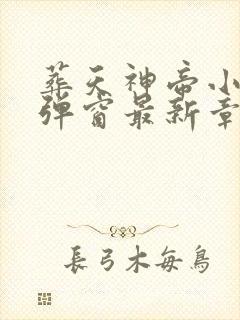 葬天神帝小
弹窗最新章
長弓木每鳥